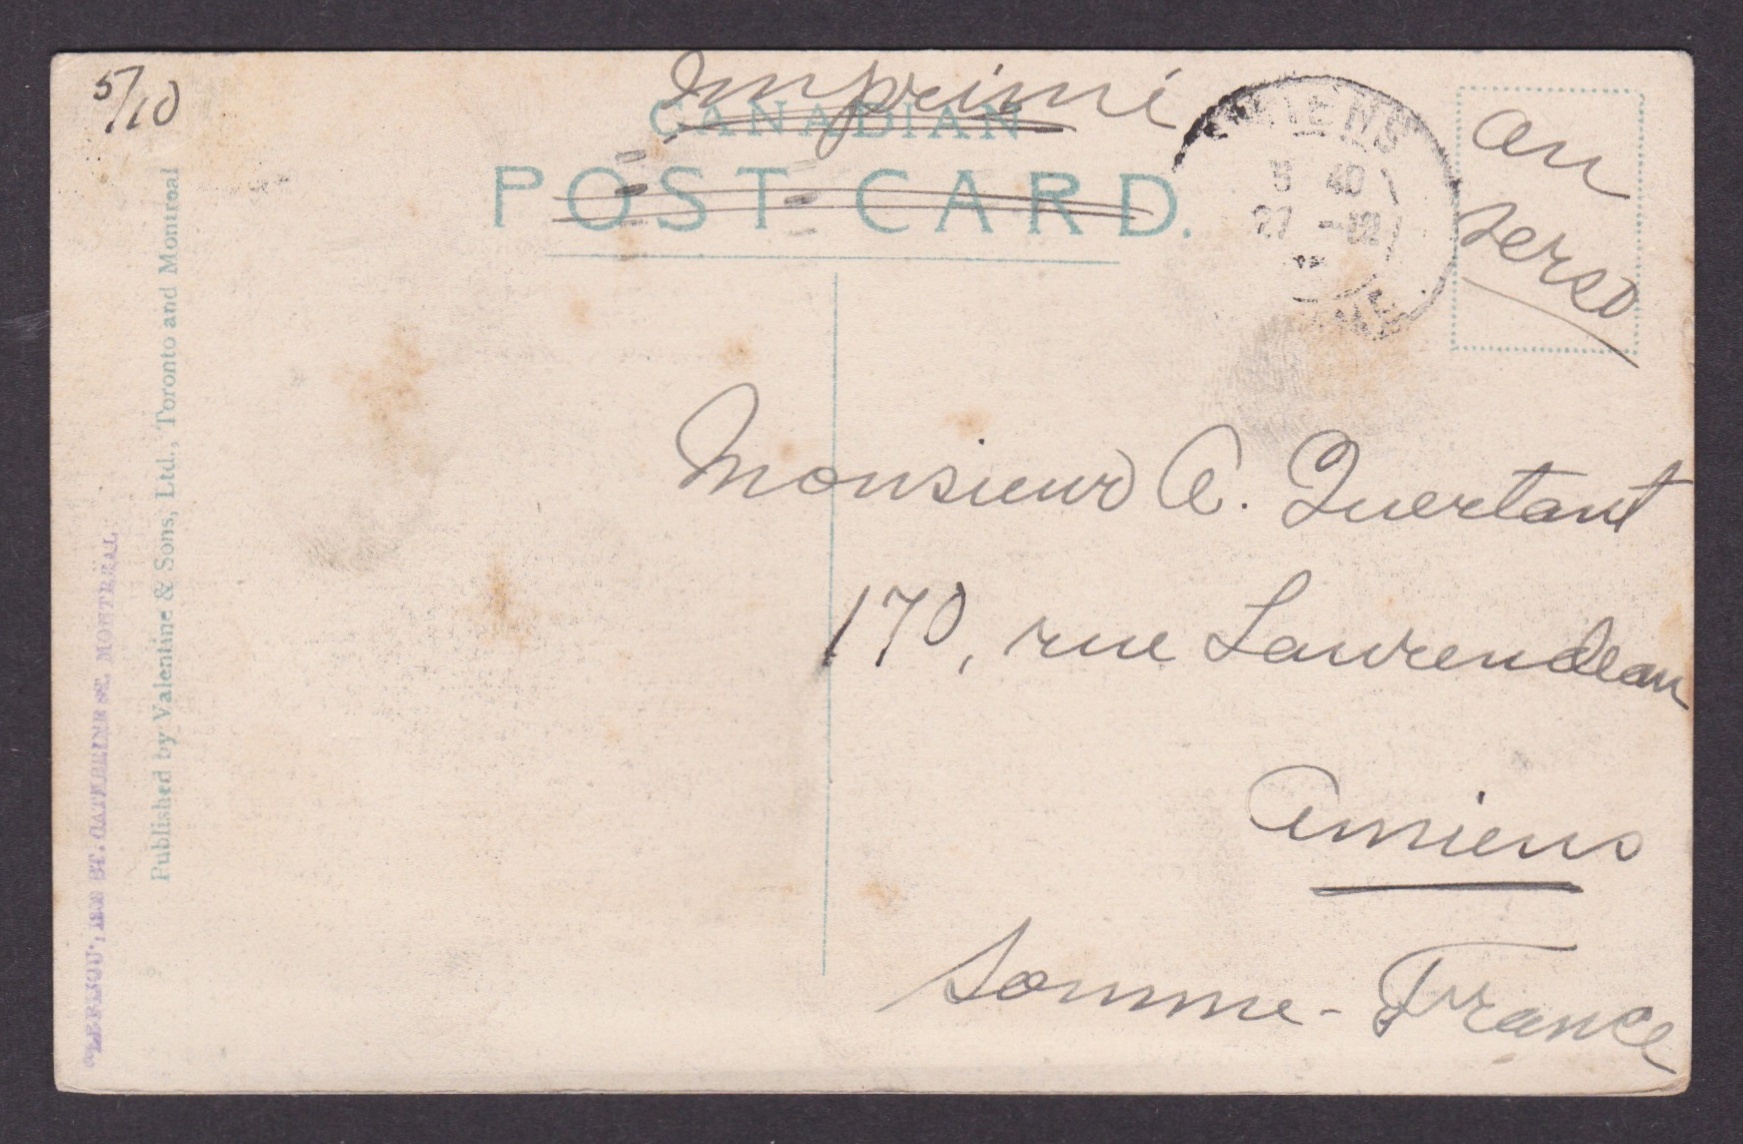 5/10
Imprimé
CANADIAN
POST CARD.
AMIENS
3 40
27 -12
au
verso
Monsieur A. Quertant
170, rue Laurendeau
Amiens
Somme - France
Published by Valentine & Sons, Ltd., Toronto and Montreal
ST. CATHERINE ST. MONTREAL